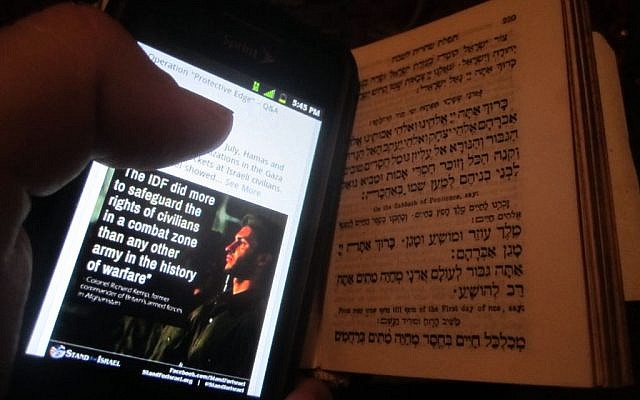 Sprint
5:45 PM
Operation "Protective Edge" – Q&A
July, Hamas and
in the Gaza
at Israeli civilians.
showed... See More
The IDF did more
to safeguard the
rights of civilians
in a combat zone
than any other
army in the history
of warfare"
Colonel Richard Kemp, former
commander of Britain's armed forces
in Afghanistan
STAND for ISRAEL
Facebook.com/StandForIsrael
StandForIsrael.org | @StandForIsrael
תפלת שחרית לשבת
צור ישראל
ברוך אתה יי אלהינו ואלהי אבותינו אלהי
אברהם אלהי יצחק ואלהי יעקב האל הגדול
הגבור והנורא אל עליון גומל חסדים טובים
וקנה הכל וזוכר חסדי אבות ומביא גואל
לבני בניהם למען שמו באהבה:
On the Sabbath of Penitence, say:
זכרנו לחיים מלך חפץ בחיים
אלהים חיים:
מלך עוזר ומושיע ומגן. ברוך אתה יי
מגן אברהם:
אתה גבור לעולם אדני מחיה מתים אתה
רב להושיע:
till of the First day of say:
משיב הרוח ומוריד הגשם:
מכלכל חיים בחסד מחיה מתים ברחמים